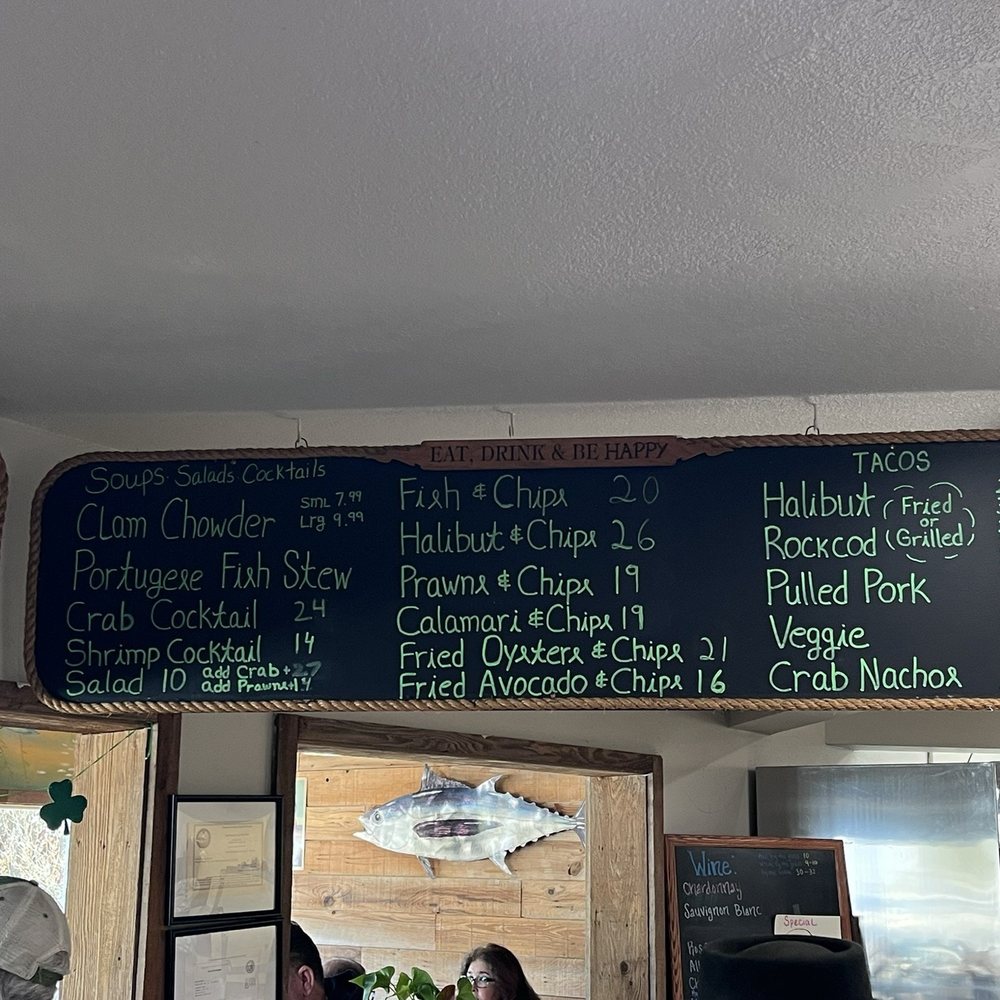 EAT, DRINK & BE HAPPY
Soups Salads Cocktails
Clam Chowder SML 7.99
Lrg 9.99
Portugese Fish Stew
Crab Cocktail 24
Shrimp Cocktail 14
Salad 10 add Crab +
add Prawns+
Fish & Chips 20
Halibut & Chips 26
Prawns & Chips 19
Calamari & Chips 19
Fried Oysters & Chips 21
Fried Avocado & Chips 16
TACOS
Halibut (Fried
or
Rockcod Grilled)
Pulled Pork
Veggie
Crab Nachos
Wine:
Chardonnay
Sauvignon Blanc
Special